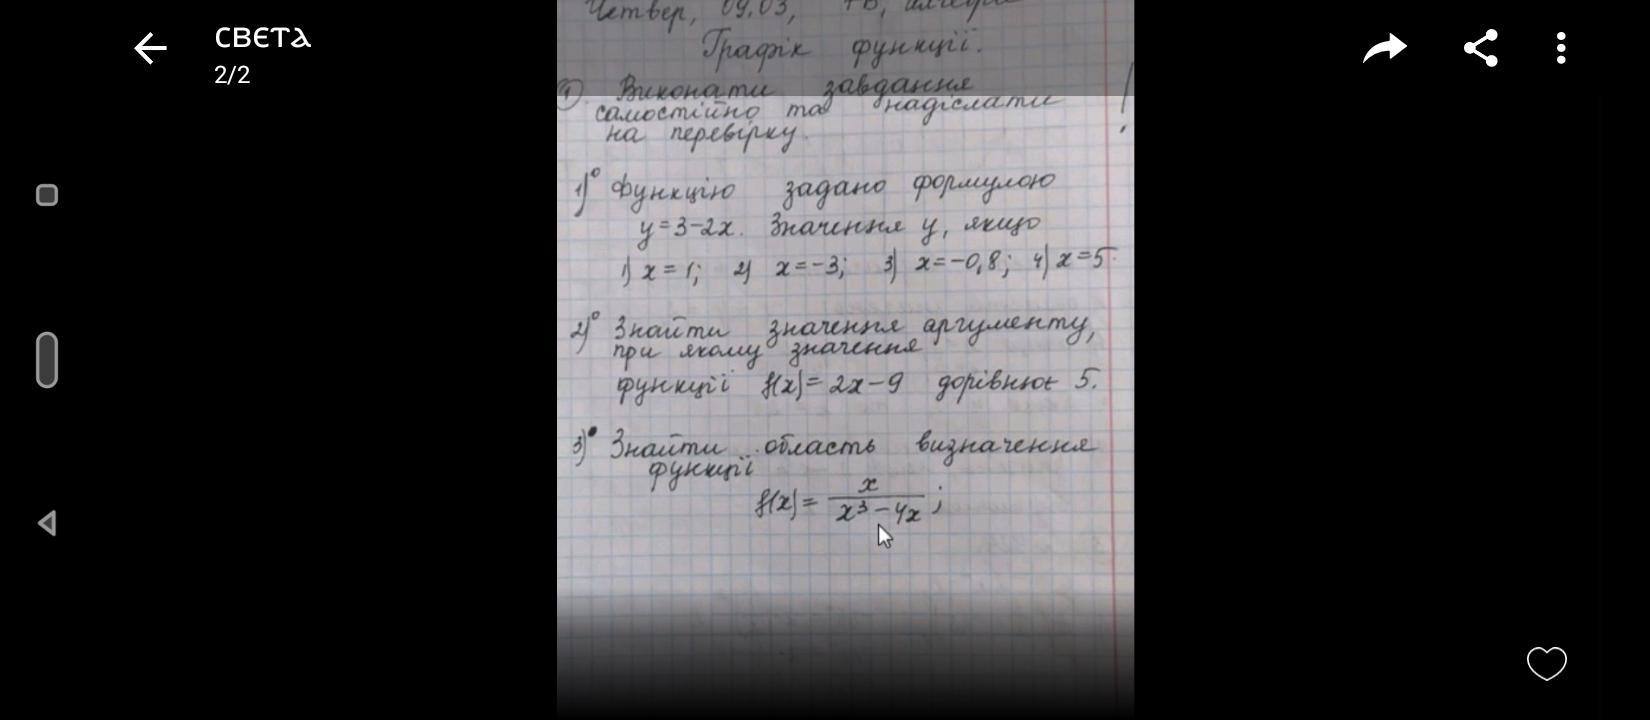 СВЕТА
2/2
Четвер, 09.03, 7В, алгебра
Графік функції.
① Виконати завдання
самостійно та надіслати !
на перевірку.
1)° Функцію задано формулою
y=3-2x. Значення y, якщо
1) x=1; 2) x=-3; 3) x=-0,8; 4) x=5.
2)° Знайти значення аргументу,
при якому значення
функції f(x)=2x-9 дорівнює 5.
3)• Знайти область визначення
функції
f(x)= x / x³-4x ;